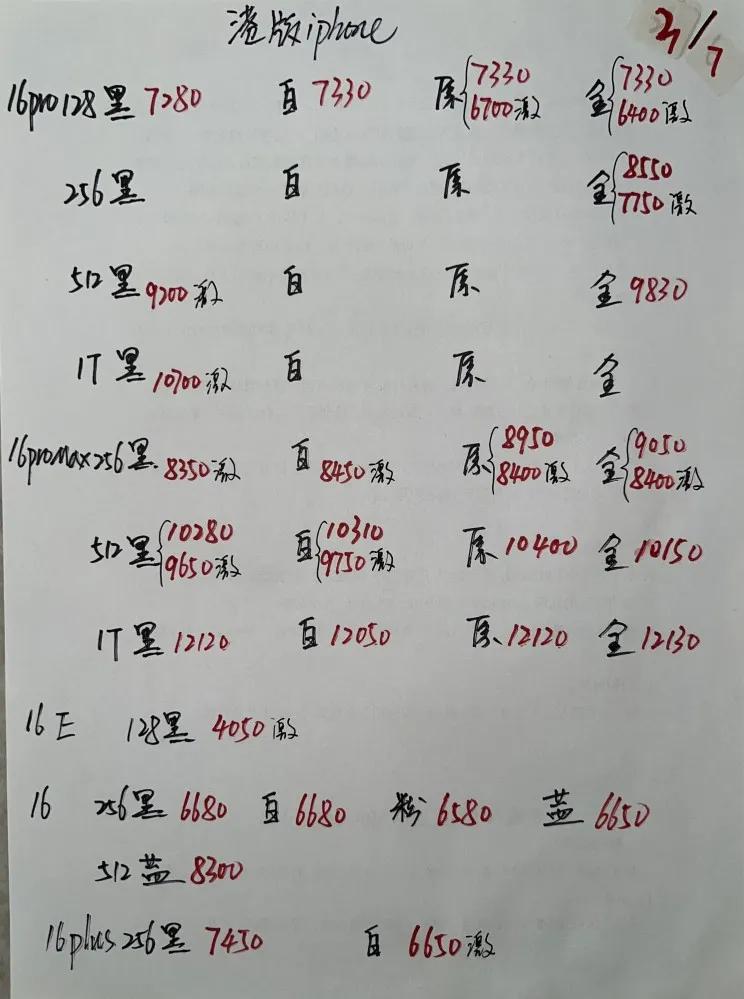 港版iphone
21/7
16pro128黑 7280 白 7330 原{7330 6700激 金{7330 6400激
256黑 白 原 金{8550 7750激
512黑 9200激 白 原 金 9830
1T黑 10700激 白 原 金
16proMax256黑 8350激 白 8450激 原{8950 8400激 金{9050 8400激
512黑{10280 9650激 白{10310 9750激 原 10400 金 10150
1T黑 12120 白 12050 原 12120 金 12130
16E 128黑 4050激
16 256黑 6680 白 6680 粉 6580 蓝 6650
512蓝 8300
16plus256黑 7450 白 6650激